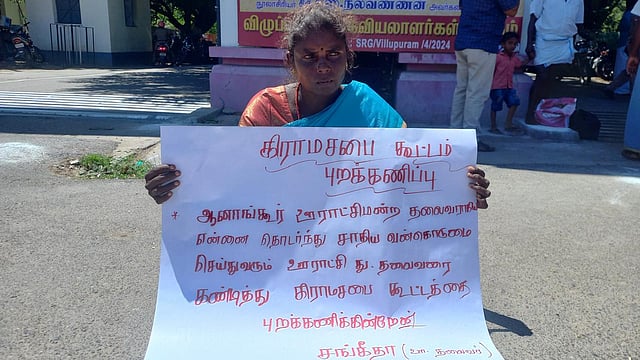 நூலாசிரியர் நல்வண்ணன் அவர்கள்
SRG/Villupuram /4/2024
கிராமசபை கூட்டம்
புறக்கணிப்பு
* ஆனாங்கூர் ஊராட்சிமன்ற தலைவராகிய
என்னை தொடர்ந்து சாதிய வன்கொடுமை
செய்துவரும் ஊராட்சி து. தலைவரை
கண்டித்து கிராமசபை கூட்டத்தை
புறக்கணிக்கின்றேன்
சங்கீதா (ஊ. தலைவர்)